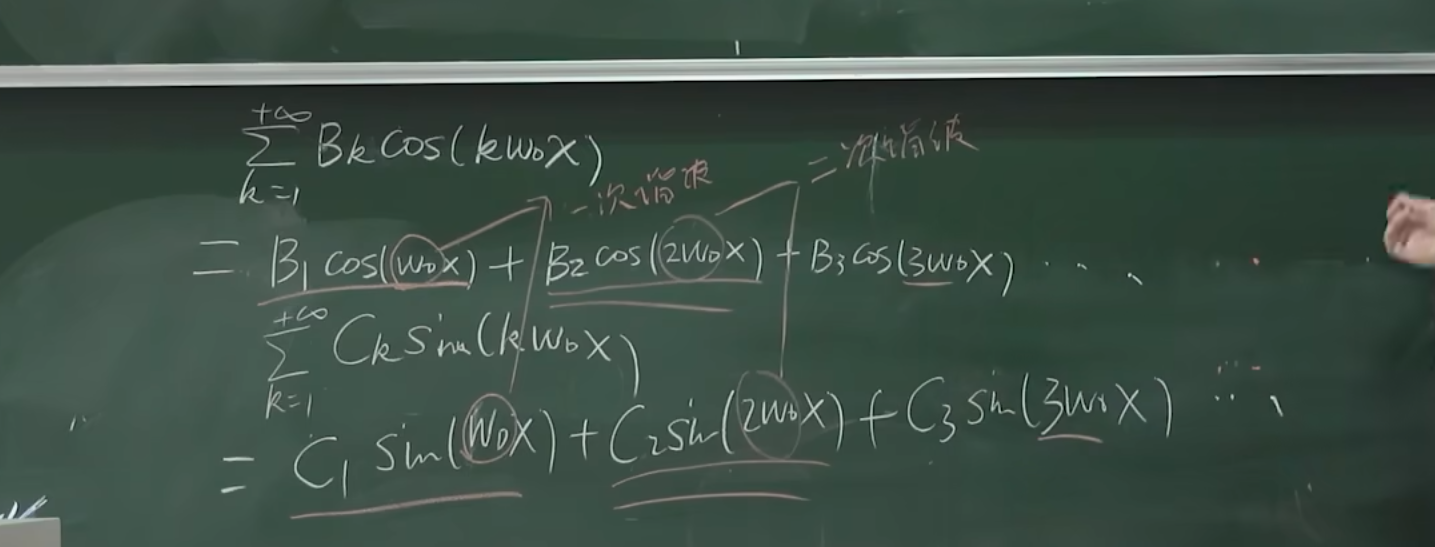 +∞
∑ Bk cos(kω₀x)
k=1
一次谐波
二次谐波
= B₁ cos(ω₀x) + B₂ cos(2ω₀x) + B₃ cos(3ω₀x) ····
+∞
∑ Ck sin(kω₀x)
k=1
= C₁ sin(ω₀x) + C₂ sin(2ω₀x) + C₃ sin(3ω₀x) ···